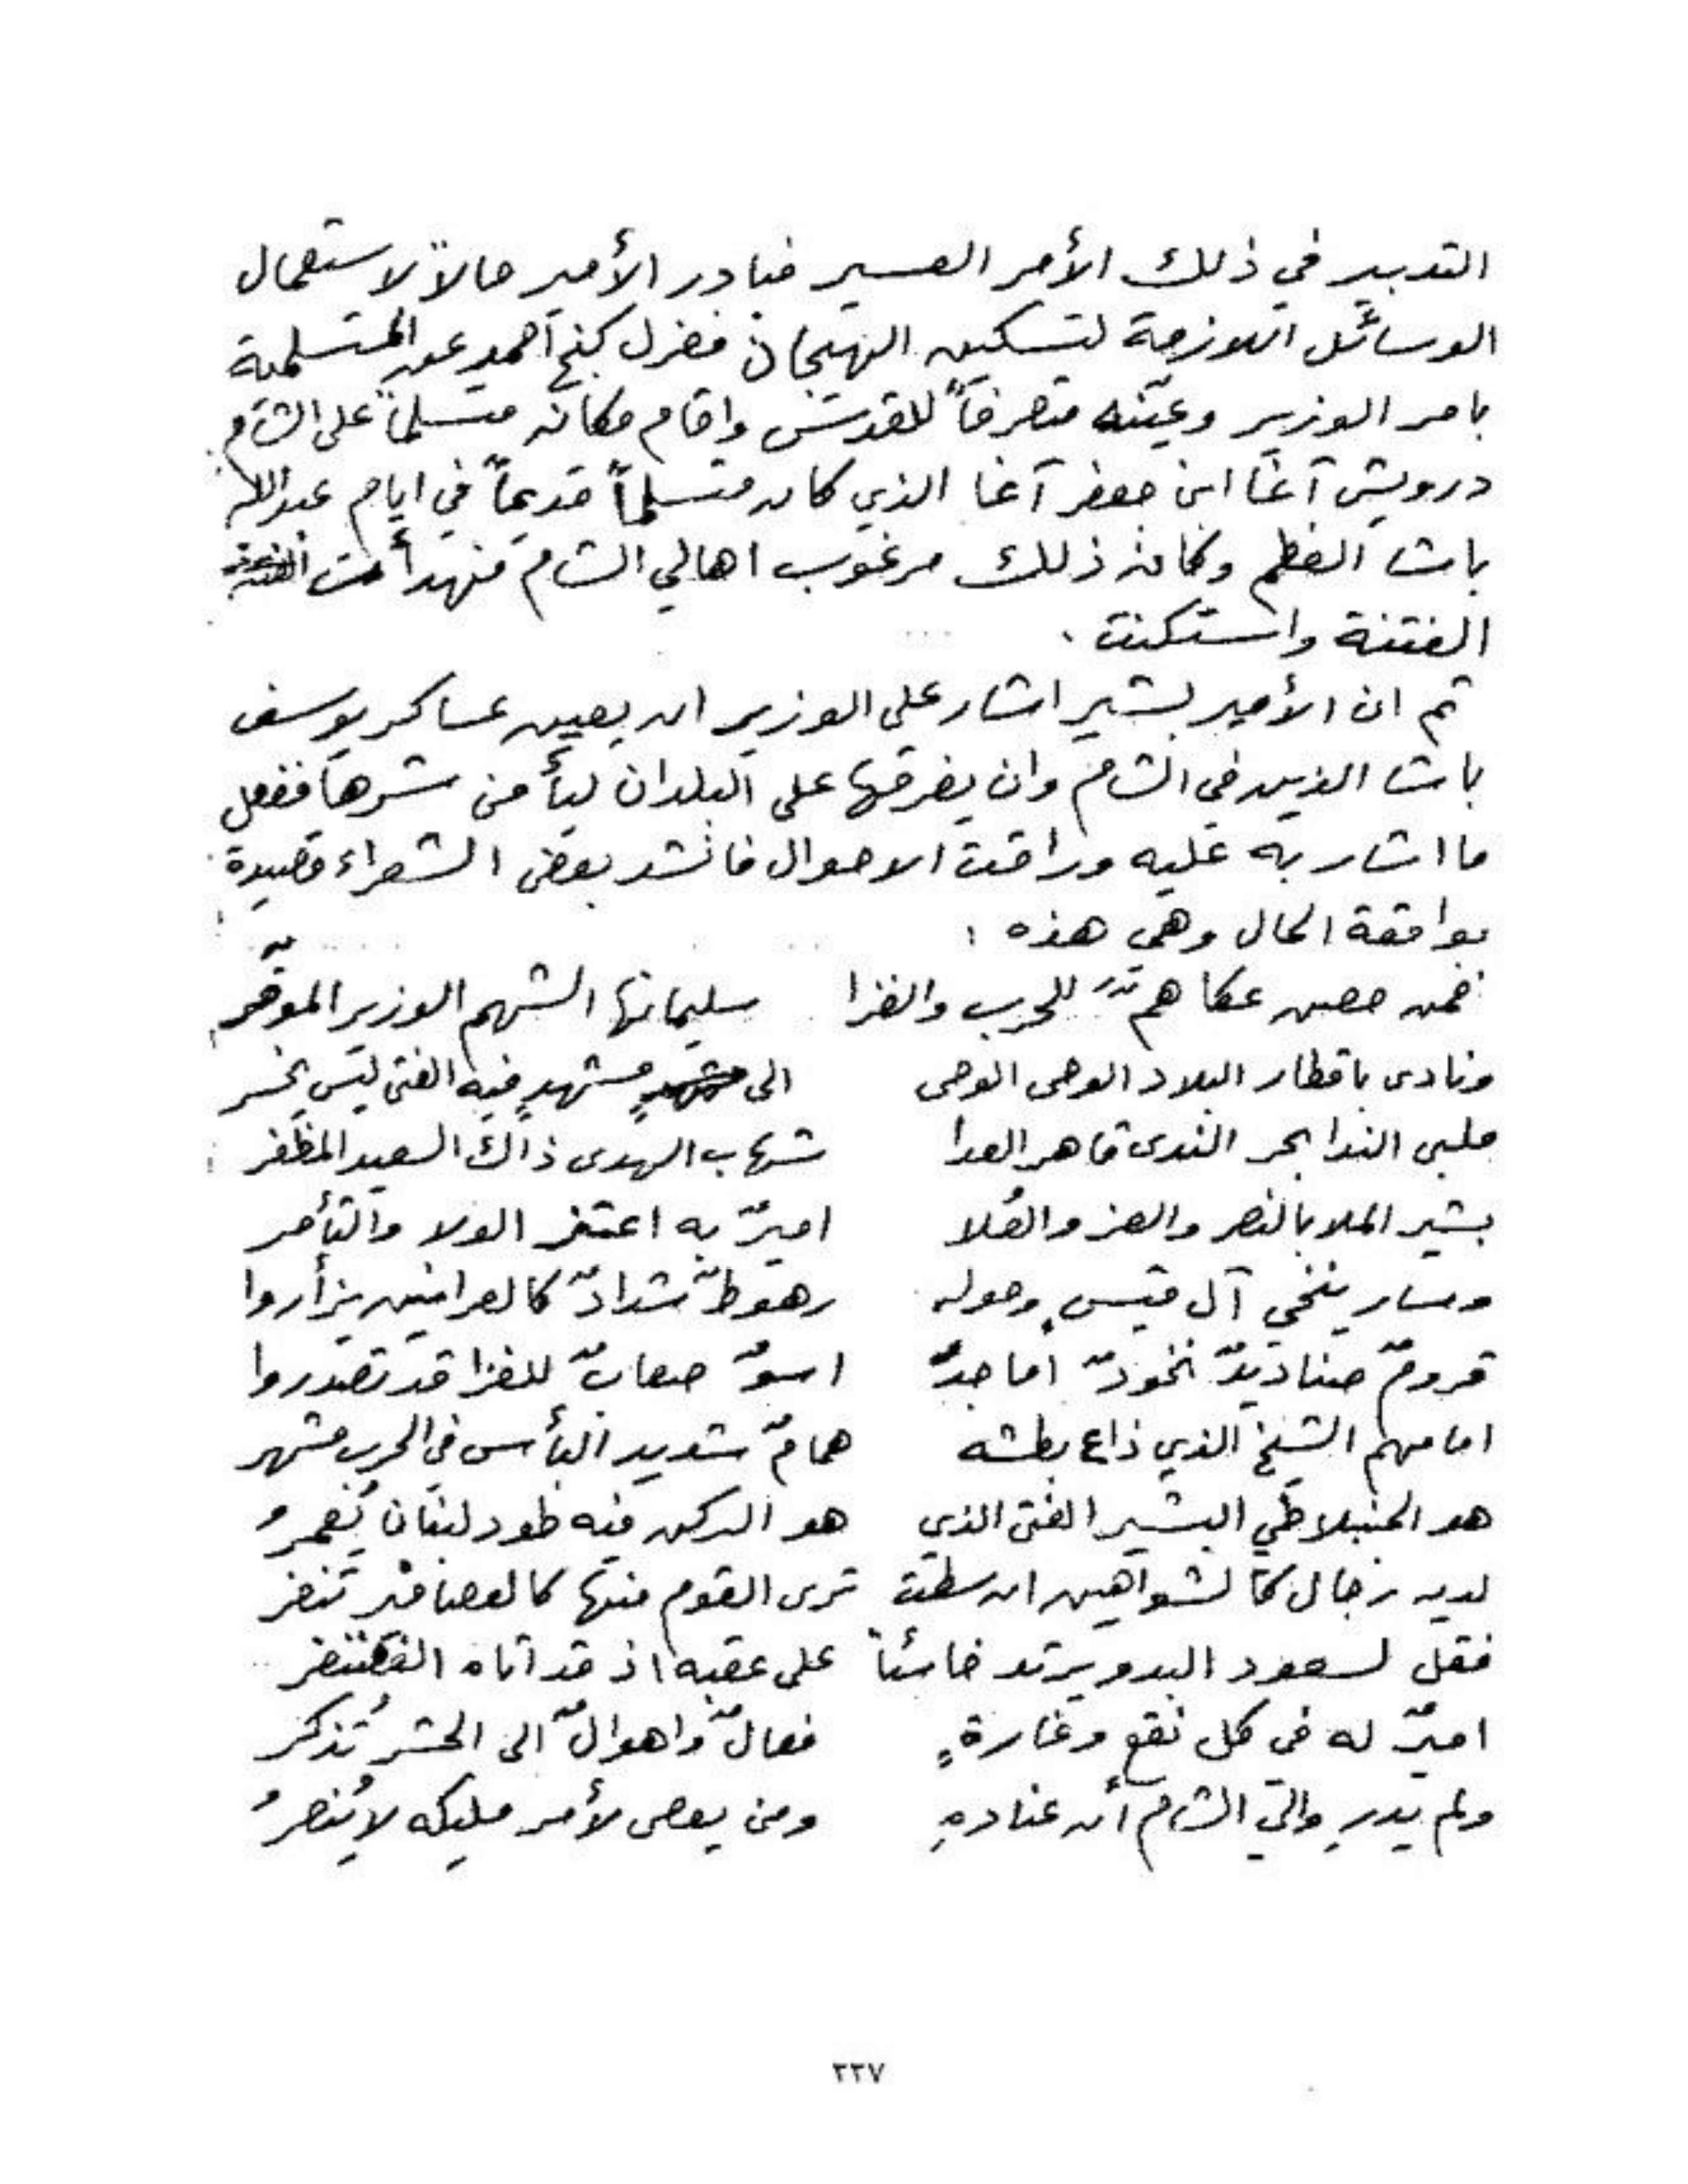 التدبير في ذلك الأمر العسير فبادر الأمير حالاً لاستعمال
الوسائل اللازمة لتسكين الهيجان فعزل كنج احمد عن المتسلمية
بامر الوزير وعيّنه متصرفاً للقدس واقام مكانه متسلماً على الشام
درويش آغا ابن جعفر آغا الذي كان متسلماً قديماً في ايام عبدالله
باشا العظم وكان ذلك مرغوب اهالي الشام فهدأت
الفتنة واستكنت .
ثم ان الأمير بشير اشار على الوزير ان يعين عساكر يوسف
باشا الذين في الشام وان يفرقها على البلدان ليأمن شرها ففعل
ما اشار به عليه وراقت الاحوال فانشد بعض الشعراء قصيدة
بواقعة الحال وهي هذه :
فمن حصن عكا للحرب والغزا سليمانها الشهم الوزير الموقّر
ونادى باقطار البلاد الوحى الوحى الى مشهدٍ فيه الفتى ليس يخسر
فلبى الندا بحر الندى قاهر العدا شهاب الهدى ذاك السعيد المظفر
بشير الملا بالنصر والعز والعُلا اميرٌ به اعتز الولا والتأمر
وسار ينخي آل قيسٍ وحوله رهوطٌ شدادٌ كالعرانين يزأروا
قرومٌ صناديدٌ اماجدٌ اسودٌ صعابٌ للغزا قد تصدروا
امامهم الشيخ الذي ذاع بطشه همامٌ شديد البأس في الحرب مشهر
هو الجنبلاطي البشير الفتى الذي هو الركن فيه طود لبنان يُعمرُ
لديه رجال كالشواهين ان سطت ترى القوم منها كالعصافير تنفر
فقل لسعود البدو يرتد خاسئاً على عقبه اذ قد اتاه الغضنفر
اميرٌ له في كل نقع وغارةٍ فعالٌ واهوالٌ الى الحشر تُذكر
ولم يدرِ والي الشام أن عنادهِ ومن يعصى لأمر مليكه لا يُنصرُ
٢٣٧